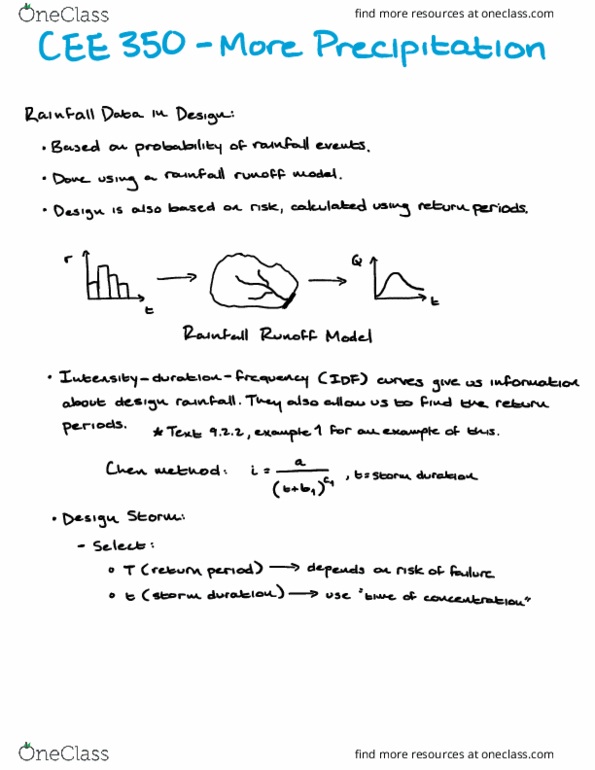 OneClass
find more resources at oneclass.com
CEE 350 - More Precipitation
Rainfall Data in Design:
• Based on probability of rainfall events.
• Done using a rainfall runoff model.
• Design is also based on risk, calculated using return periods.
r
t
Q
t
Rainfall Runoff Model
• Intensity-duration-frequency (IDF) curves give us information
about design rainfall. They also allow us to find the return
periods. * Text 9.2.2, example 1 for an example of this.
Chen method: i = a / (t+b₁)^c₁, t = storm duration
• Design Storm:
- Select:
o T (return period) → depends on risk of failure
o t (storm duration) → use "time of concentration"
OneClass
find more resources at oneclass.com